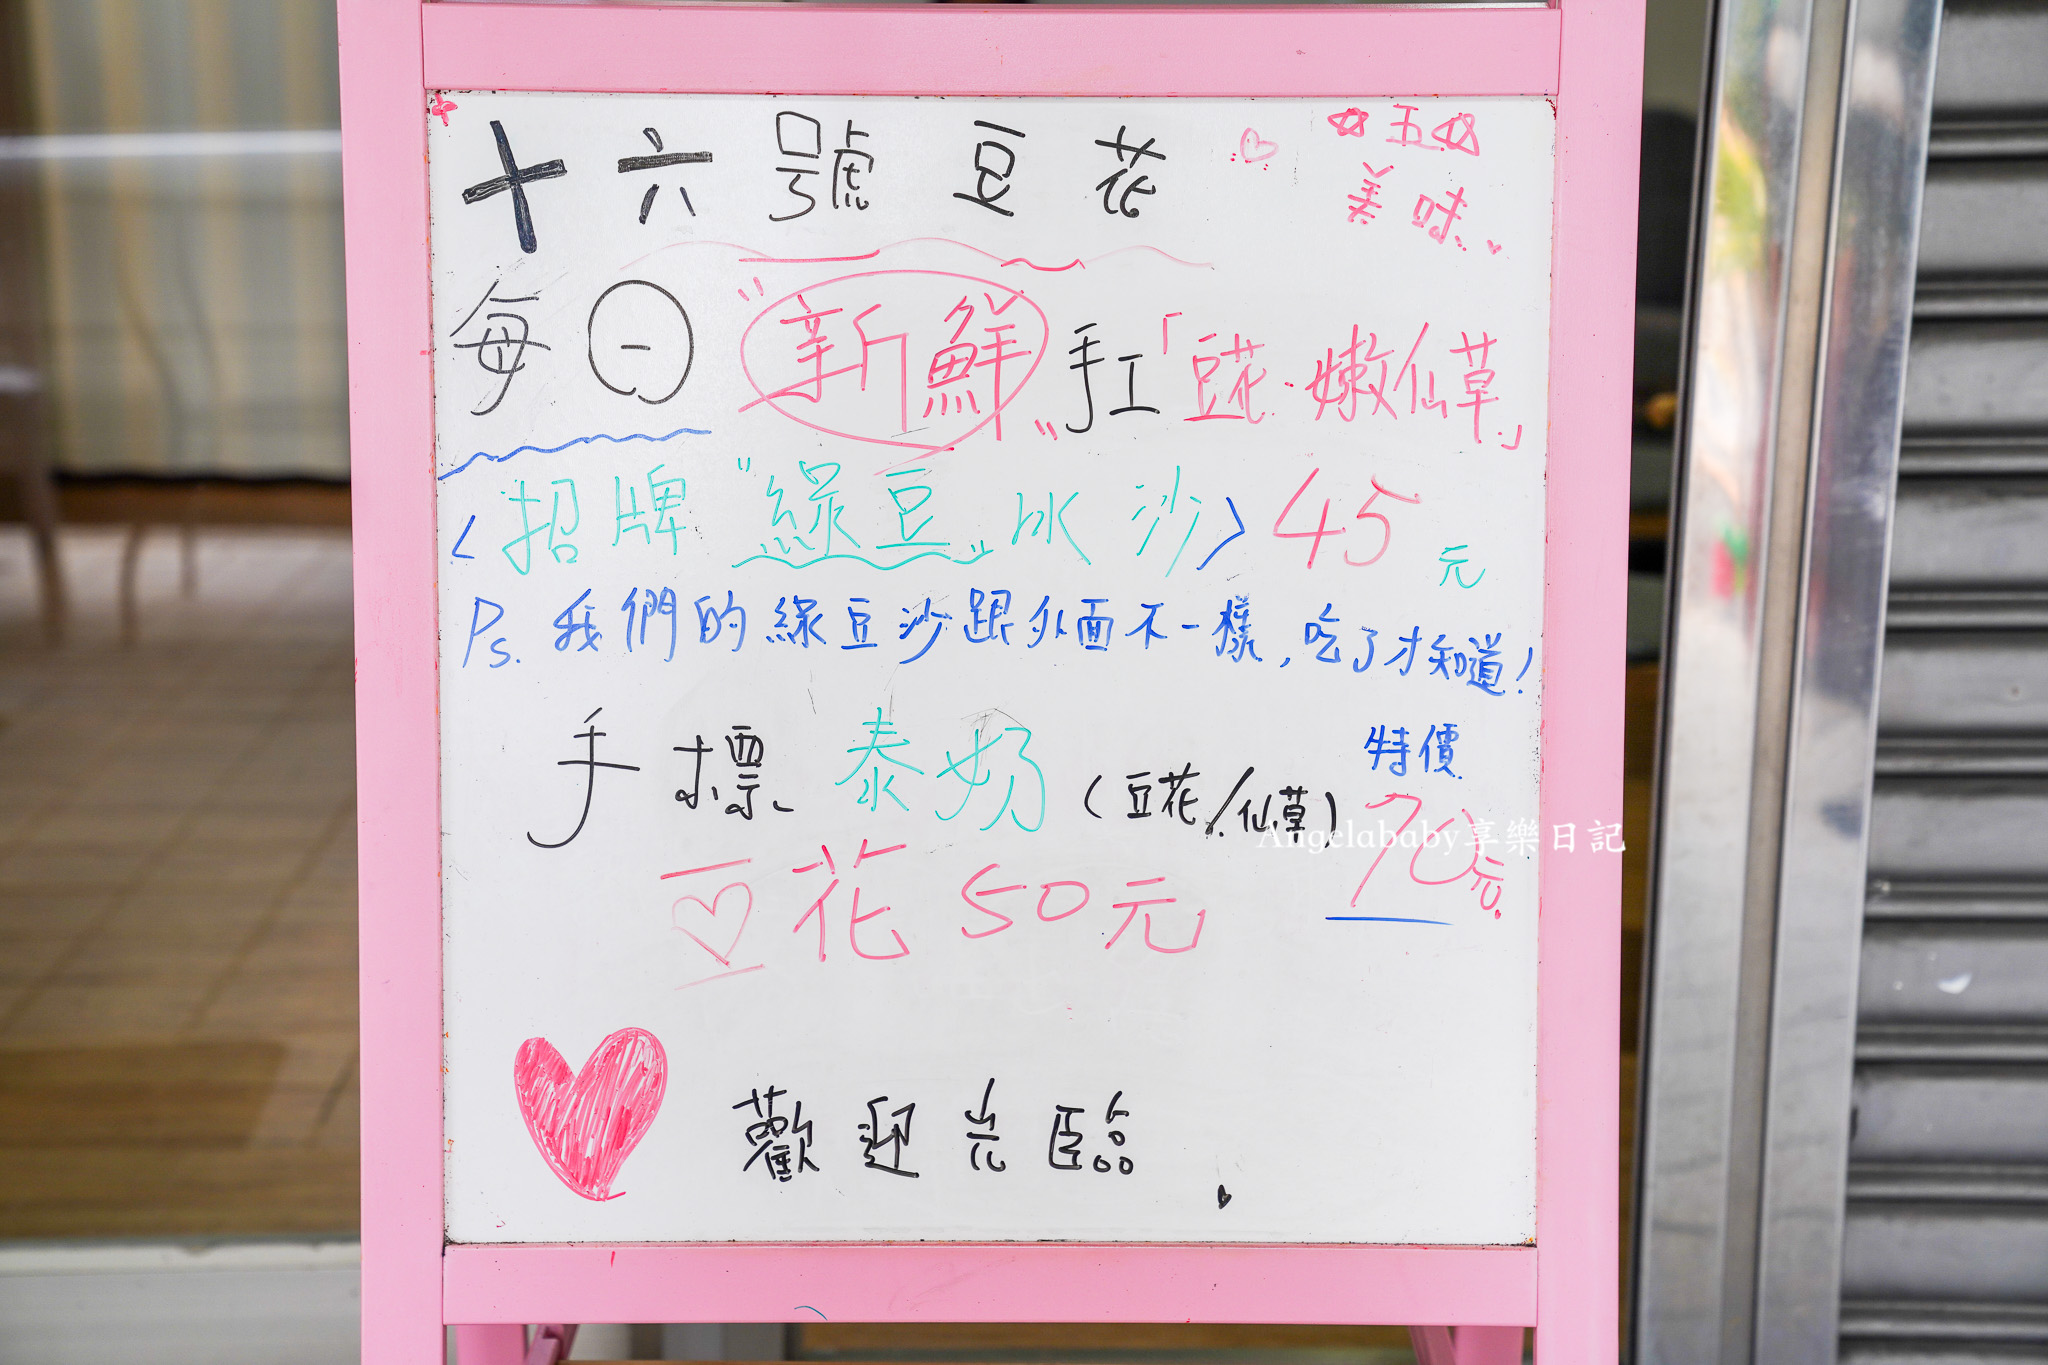 十六號豆花
☆五☆
美味
每日"新鮮"手工「豆花.嫩仙草」
<招牌"綠豆"冰沙>45元
Ps.我們的綠豆沙跟外面不一樣,吃了才知道!
手標泰奶(豆花/仙草)
特價
70元.
豆花50元
歡迎光臨
Angelababy享樂日記